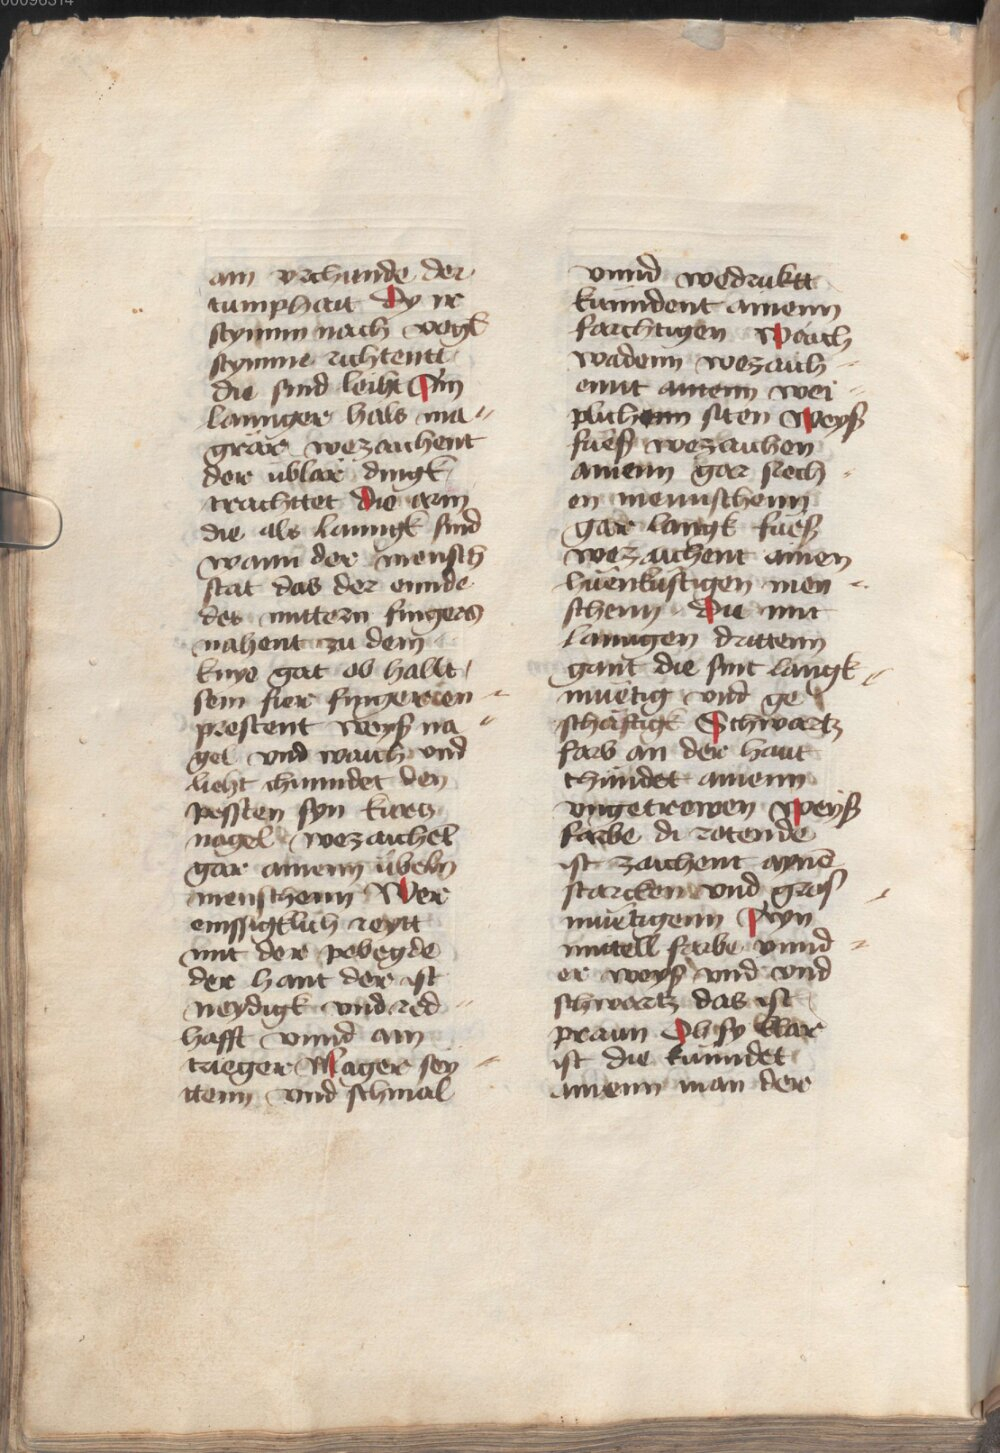 00096314
ain vrchunde der
tumphait Dy ir
stymm nach vogl
stymme richtentt
die sind leiht Ain
lannger hals ma⸗
grär wezaichent
der üblär dingk
trachttet Die arm
die als lanngk sind
wann der mensch
stat das der ennde
des mittern fingers
nahent zu dem
knye gat ob hallt
sein fier fingeren⸗
prestent Weyß na⸗
gel vnd waich vnd
lieht chunndet den
pessten syn kurtz
nagel wezaichet
gar ainenn übeln
menschenn Wer
emssigklich reytt
mit der pebegde
der hant der ist
neydigk vnd red⸗
hafft vnnd ain
traeger Mager sey⸗
ttenn vnd schmal
vnnd wedruktt
kunndent ainenn
forchtigen Waich
wadenn wezaich⸗
ennt ainenn wei⸗
plichenn siten Weyß
füeß wezaichen
ainenn gar frech⸗
en mennschenn
gar langk füeß
wezaichent ainen
luenlustigen men⸗
schenn Die mit
lanngen drittenn
gant die sint langk⸗
muetig vnd ge
schäftigk Schwartz
farb an der haut
chündet ainenn
vngetrewen Weyß
farbe di rotende
ist zaichent aynē
starcken vnd groß⸗
muetigenn Ayn
mittell farbe vnnd⸗
er weyß vnd vnd
schwartz das ist
praun Ob sy klar
ist die kunndet
ainenn man der